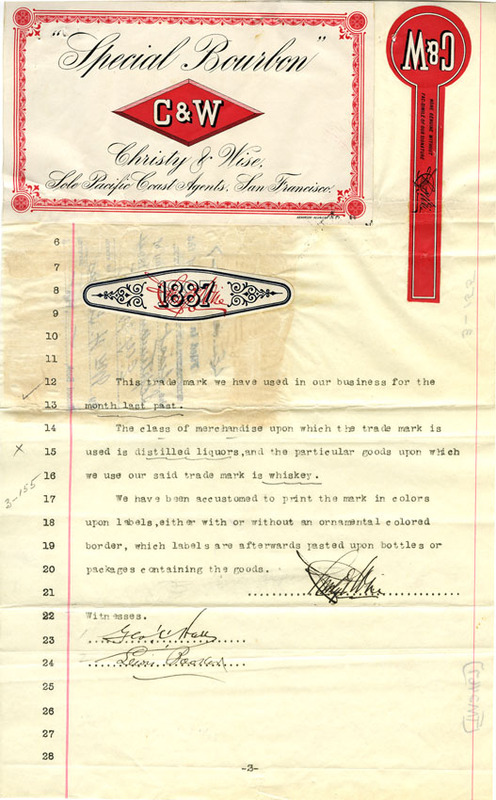 "Special Bourbon"
C&W
Christy & Wise,
Sole Pacific Coast Agents, San Francisco.
C&W
NONE GENUINE WITHOUT
FAC-SIMILE OF OUR SIGNATURE
3-155
6
7
8
1887
9
10
11
12 This trade mark we have used in our business for the
13 month last past.
14 The class of merchandise upon which the trade mark is
15 used is distilled liquors,and the particular goods upon which
16 we use our said trade mark is whiskey.
17 We have been accustomed to print the mark in colors
18 upon labels,either with or without an ornamental colored
19 border, which labels are afterwards pasted upon bottles or
20 packages containing the goods.
21
22 Witnesses.
23 Geo C Hall
24
25
26
27
28
-2-